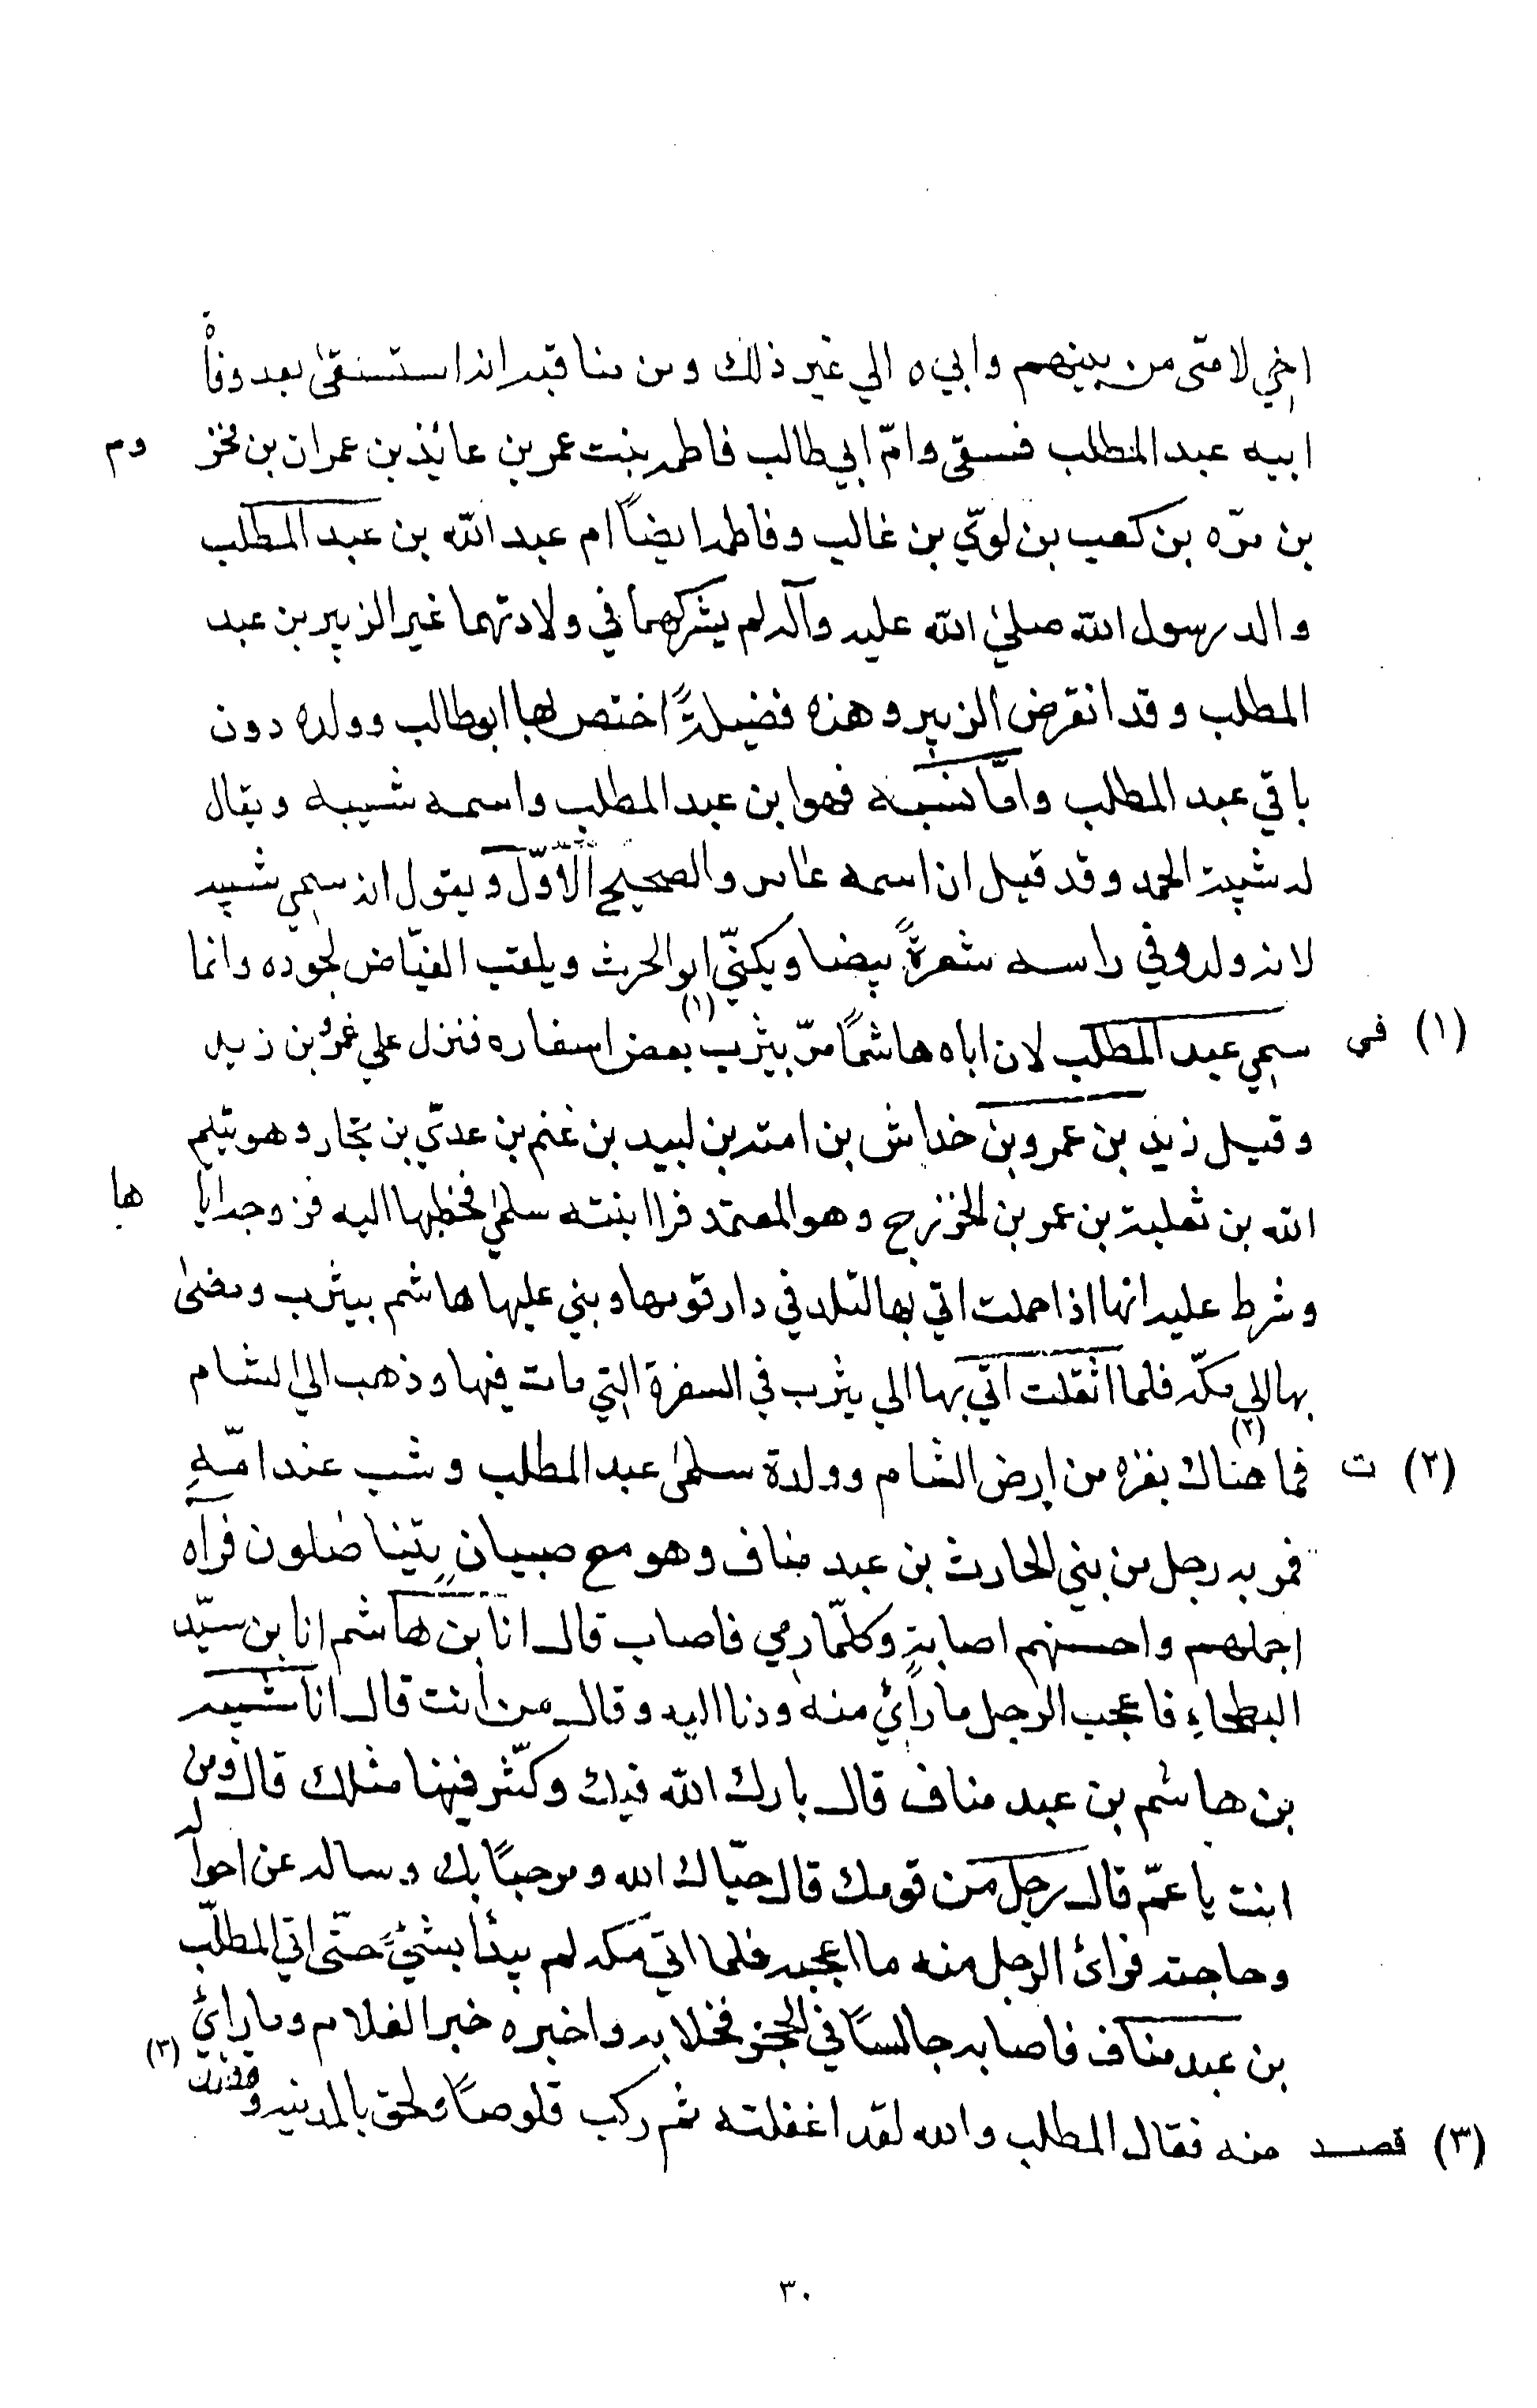 اخي لامتى من بينهم وابي ه الي غير ذلك ومن مناقبه انه استسقىٰ بعد وفاة
ابيه عبد المطلب فسقى وامّ ابي طالب فاطمه بنت عمر بن عائذ بن عمران بن مخز وم
بن مرّه بن كعب بن لويّ بن غالب وفاطمه ايضاً ام عبد الله بن عبد المطلب
والد رسول الله صلىٰ الله عليه وآله لم يشركهما في ولادتهما غير الزبير بن عبد
المطلب وقد انقرض الزبير وهذه فضيلةً اختص بها ابوطالب وولده دون
باقي عبد المطلب وامّا نسبه فهوابن عبد المطلب واسمه شيبه ويقال
له شيبة الحمد وقد قيل ان اسمه عامر والصحيح الاوّل ويقول انه سمي شيبه
لانه ولد وفي راسه شعرةً بيضا ويكنّي ابوالحرث ويلقب الفيّاض لجوده وانما
(١) في سمي عبد المطلب لان اباه هاشماً مرّ بيثرب (١) بعض اسفاره فنزل علي عمرو بن زيد
وقيل زيد بن عمروبن خداش بن امته بن لبيد بن غنم بن عديّ بن نجار وهو تيم
الله بن ثعلبة بن عمر بن الخزرج وهو المعتمد فراا بنته سلمىٰ فخطبها اليه فزوجه ايا ها
وشرط عليه انها اذا حملت اتي بها لتلد في دار قومها وبني عليها هاشم بيثرب ومضىٰ
بها الي مكّه فلما اثقلت اتي بها الي يثرب في السفرة التي مات فيها وذهب الي الشام
(٢) ت فما (٢) هناك بغزه من ارض الشام وولدة سلمىٰ عبد المطلب وشب عند امّهِ
فمر به رجل من بني الحارث بن عبد مناف وهو مع صبيان يتينا ضلون فرآه
اجملهم واحسنهم اصابةٍ وكلّما رمي فاصاب قال انا بن هاشم انا بن سيّد
البطحاءِ فاعجب الرجل ما رأئي منه ودنا اليه وقال من أنت قال انا شيبه
بن هاشم بن عبد مناف قال بارك الله فيك وكثّر فينا مثلك قال ومن
انت يا عمّ قال رجل من قومك قال حيّاك الله ومرحباً بك وساله عن احواله
وحاجته فرائ الرجل منه ما اعجبه فلما اتي مكه لم يبدأ بشئٍ حتّى اتي المطلّب
بن عبد مناف فاصابه جالساً في الحجر فخلا به واخبره خبر الغلام وما رائي
(٣) قصد منه فقال المطلب والله لقد اغفلته ثم ركب قلوصاً ولحق بالمدينه و (٣)
٣٠